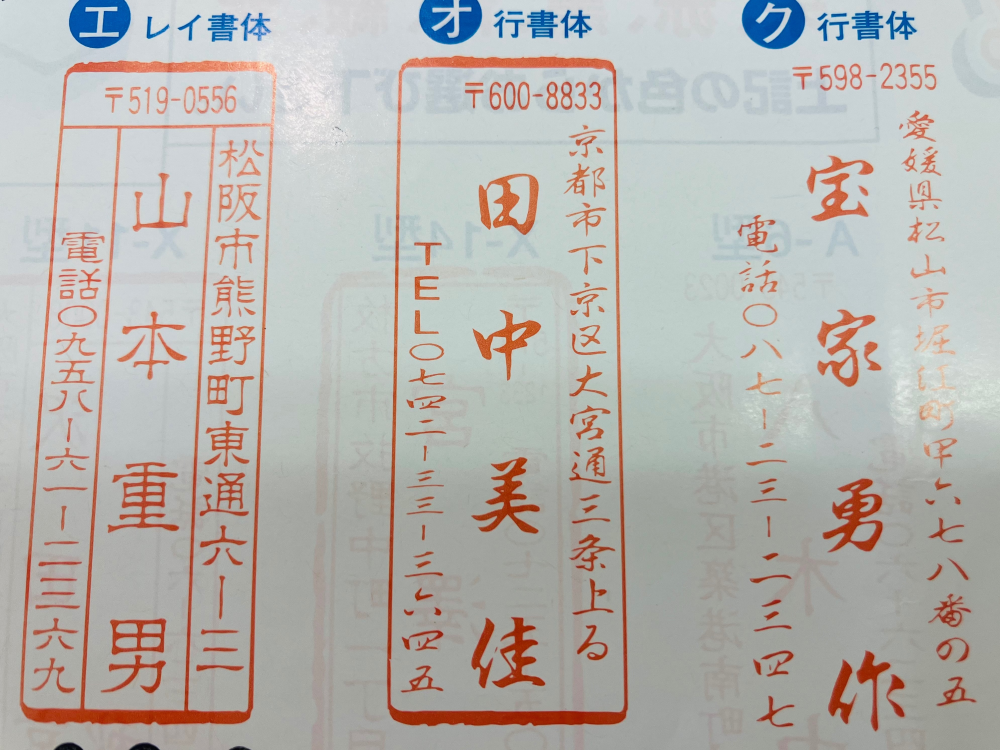 ク 行書体
〒598-2355
愛媛県松山市堀江町甲六七八番の五
宝家勇作
電話〇八七ー二三ー二三四七
オ 行書体
〒600-8833
京都市下京区大宮通三条上る
田中美佳
TEL〇七四二ー三三ー三六四五
エ レイ書体
〒519-0556
松阪市熊野町東通六ー三
山本重男
電話〇九五八ー六一ー二三六九
A-6型
X-14型